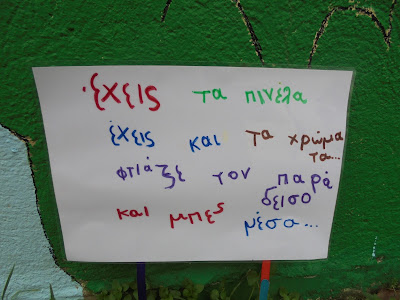 έχεις τα πινέλα
έχεις και τα χρώμα
τα...
φτιάξε τον παρά
δεισο
και μπες μέσα...